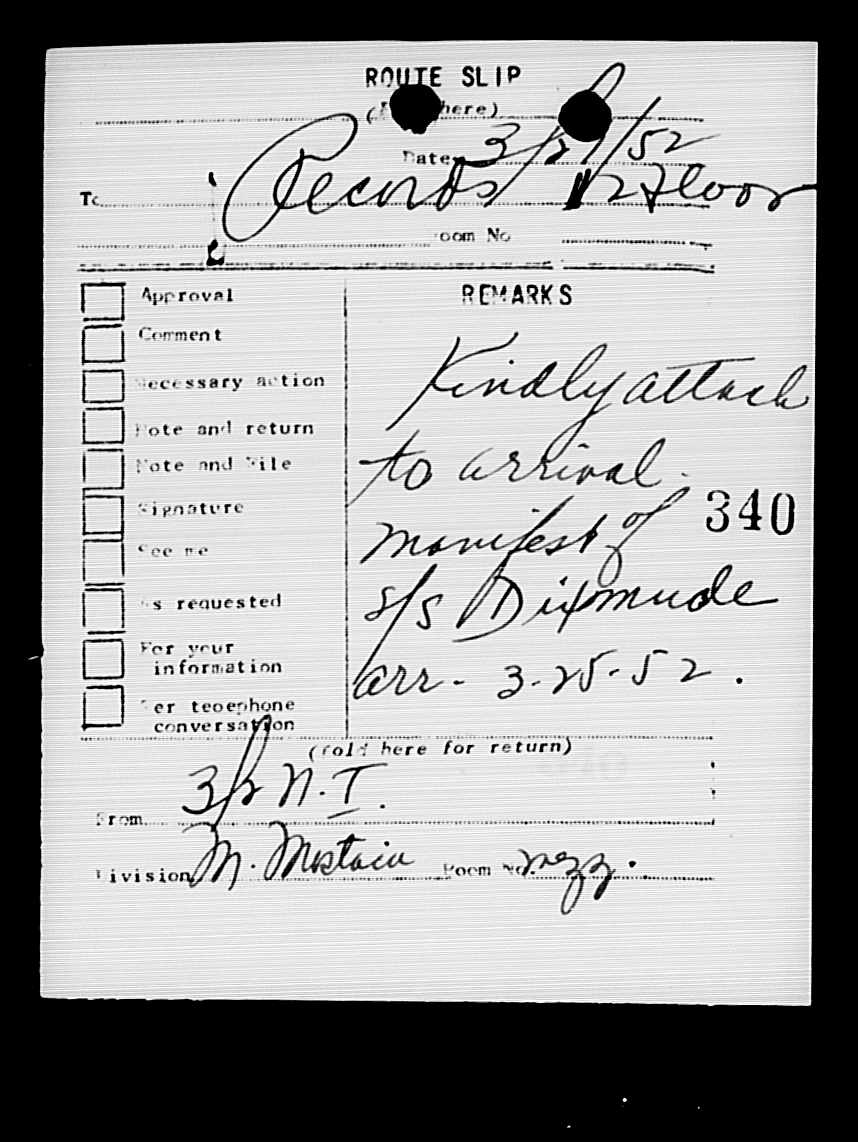 ROUTE SLIP
here)
Date 3/2 /52
To Records 12 Floor
oom No
REMARKS
Approval
Comment
ecessary action
Note and return
Note and File
Signature
See me
s requested
For your
information
er teoephone
conversation
Kindly attach
to arrival
manifest of
340
s/s Dixmude
arr- 3-25-52.
(fold here for return)
From N.I.
Division M. Room No. mezz.